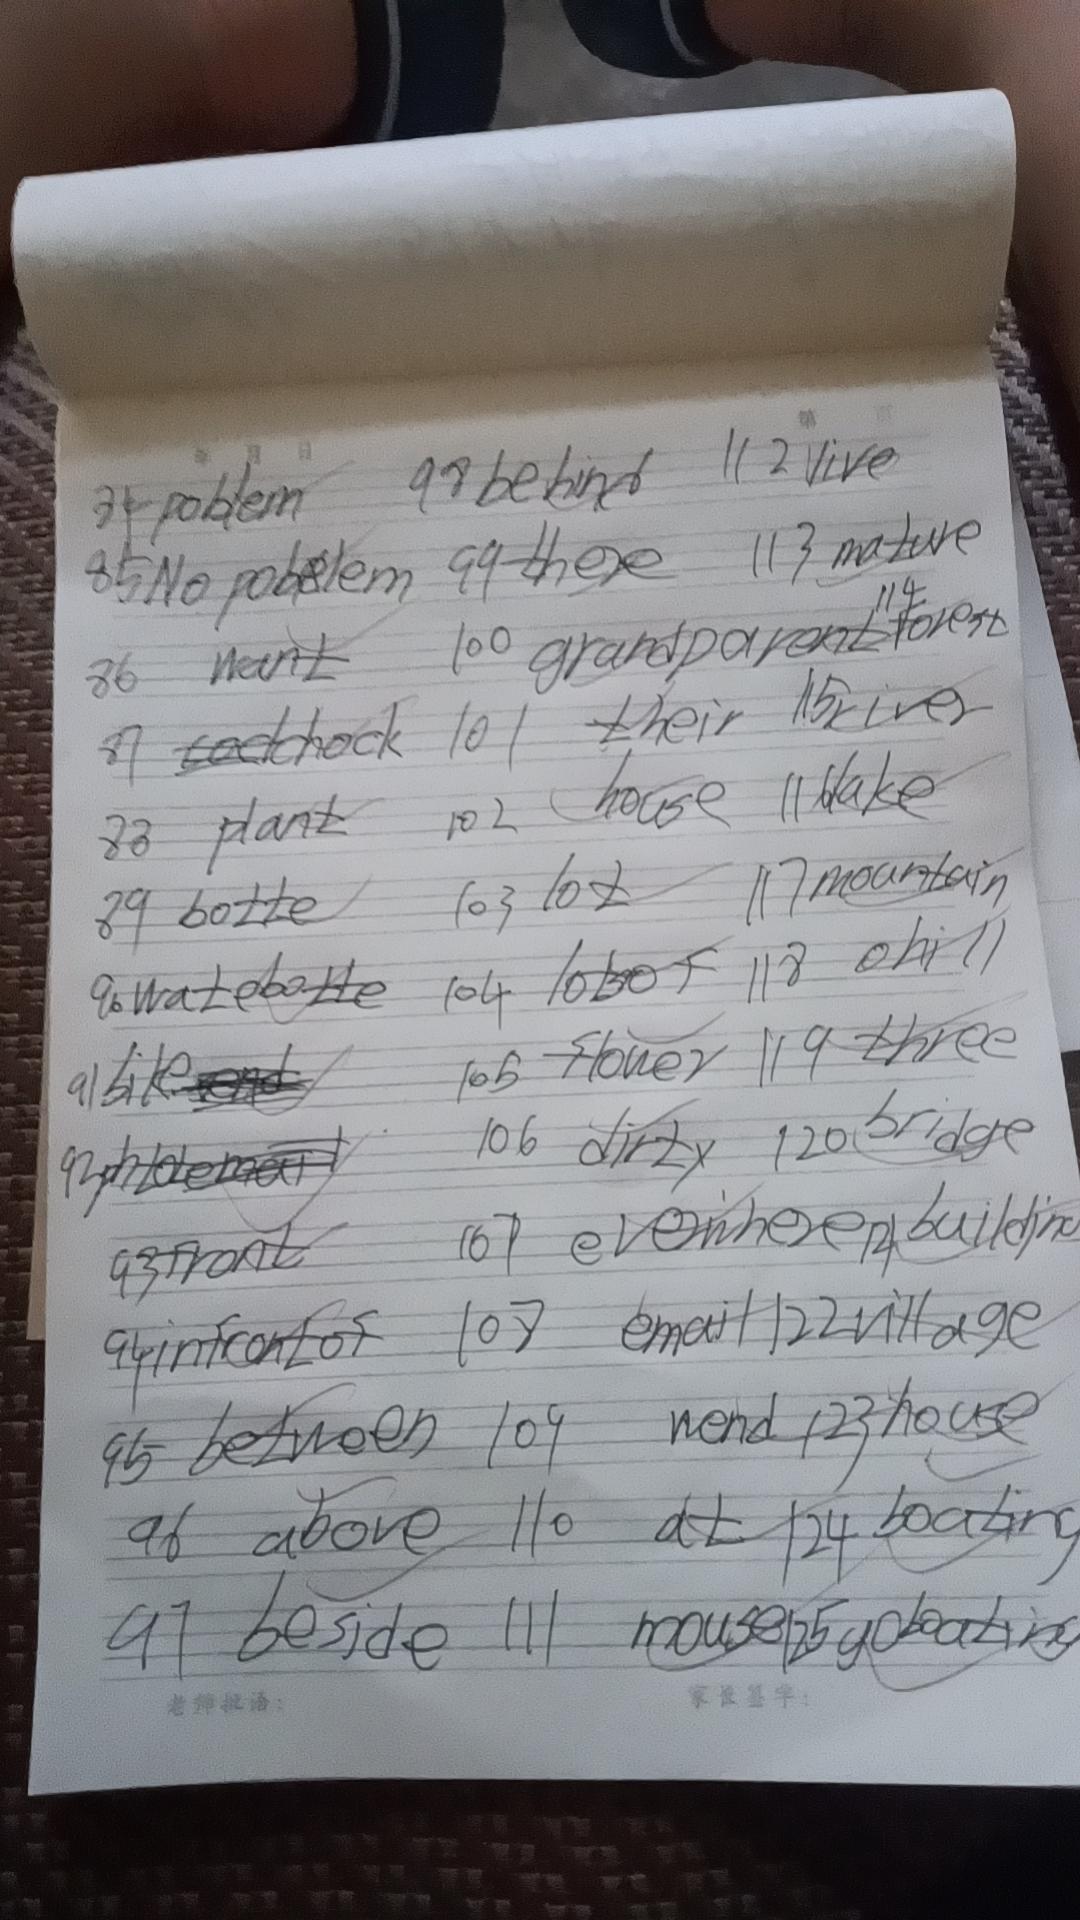 84 poblem
85 No poblem
86 want
87 chock
88 plant
89 botte
90 watebotte
91 bike
93 front
94 infrontof
95 between
96 above
97 beside
98 behind
99 there
100 grandparent
101 their
102 house
103 lot
104 lobof
105 flower
106 dirty
107 everwhere
108 email
109 wend
110 at
111 mouse
112 vive
113 mature
114 forest
115 river
116 lake
117 mountain
118 ahill
119 three
120 bridge
121 building
122 village
123 house
124 boating
125 goboating
老师批语:
家长签字: